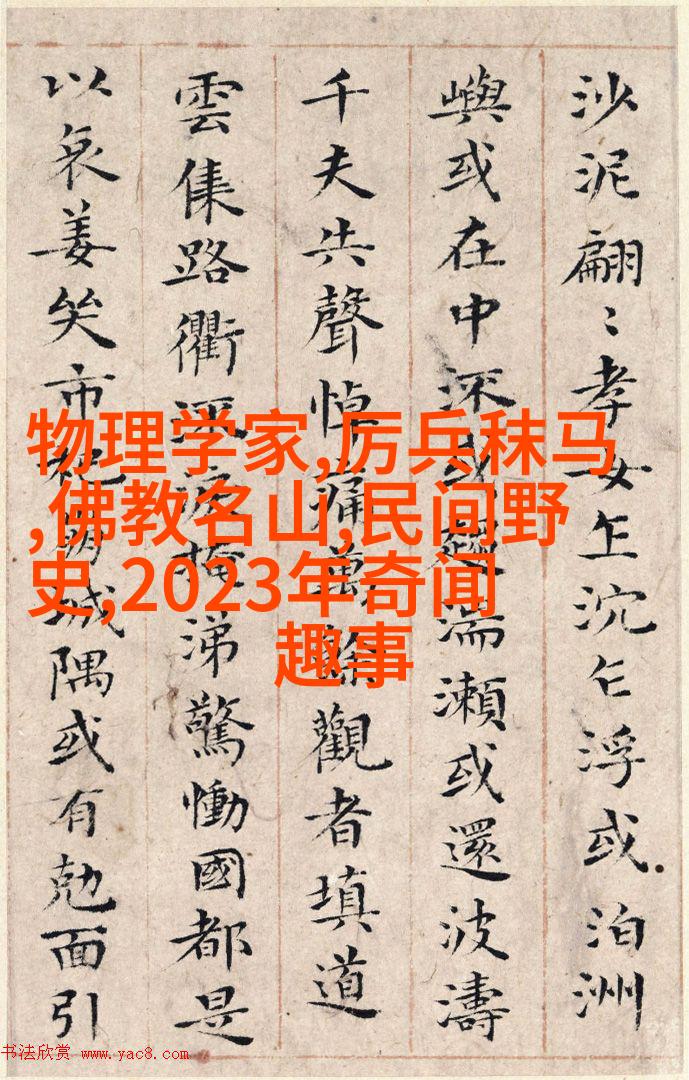 沙泥翩〻孝女乍沉乍浮或泊洲
嶼或在中流或趨湍瀨或還波濤
千夫失聲悼痛萬餘觀者填道
雲集路衢流淚掩涕驚慟國都是
以哀姜哭市杞崩城隅或有尅面引
物理学家,厉兵秣马
,佛教名山,民间野
史,2023年奇闻
趣事
书法欣赏 www.yac8.com